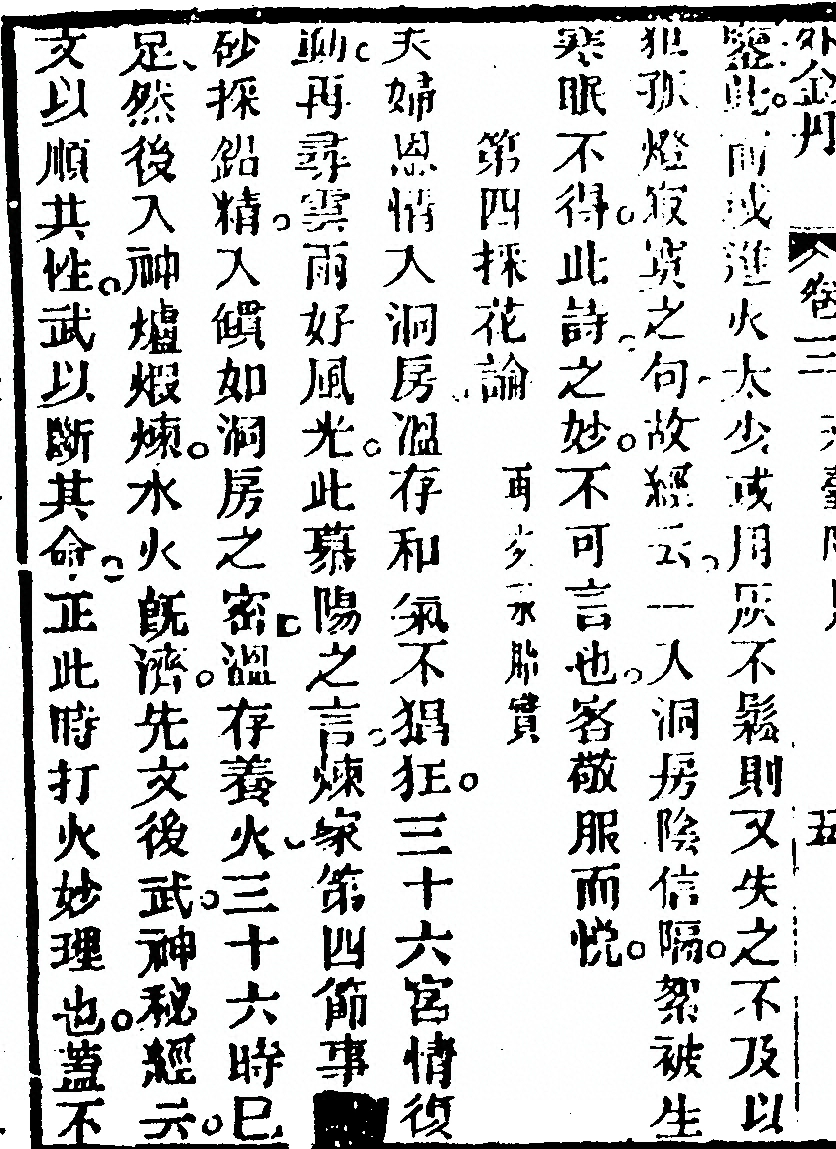 外金丹 卷三 五
鑒此而或進火太少或用灰不鬆則又失之不及以
犯孤燈寂寞之句故經云一人洞房陰信隔絮被生
寒眠不得此詩之妙不可言也客敬服而悅
第四採花論
夫婦恩情入洞房溫存和氣不猖狂三十六宮情復
動再尋雲雨好風光此慕陽之言煉家第四節事
砂採鉛精入饋如洞房之密溫存養火三十六時巳
足然後入神爐煆煉水火旣濟先文後武神秘經云
文以順共性武以斷其命正此時打火妙理也蓋不